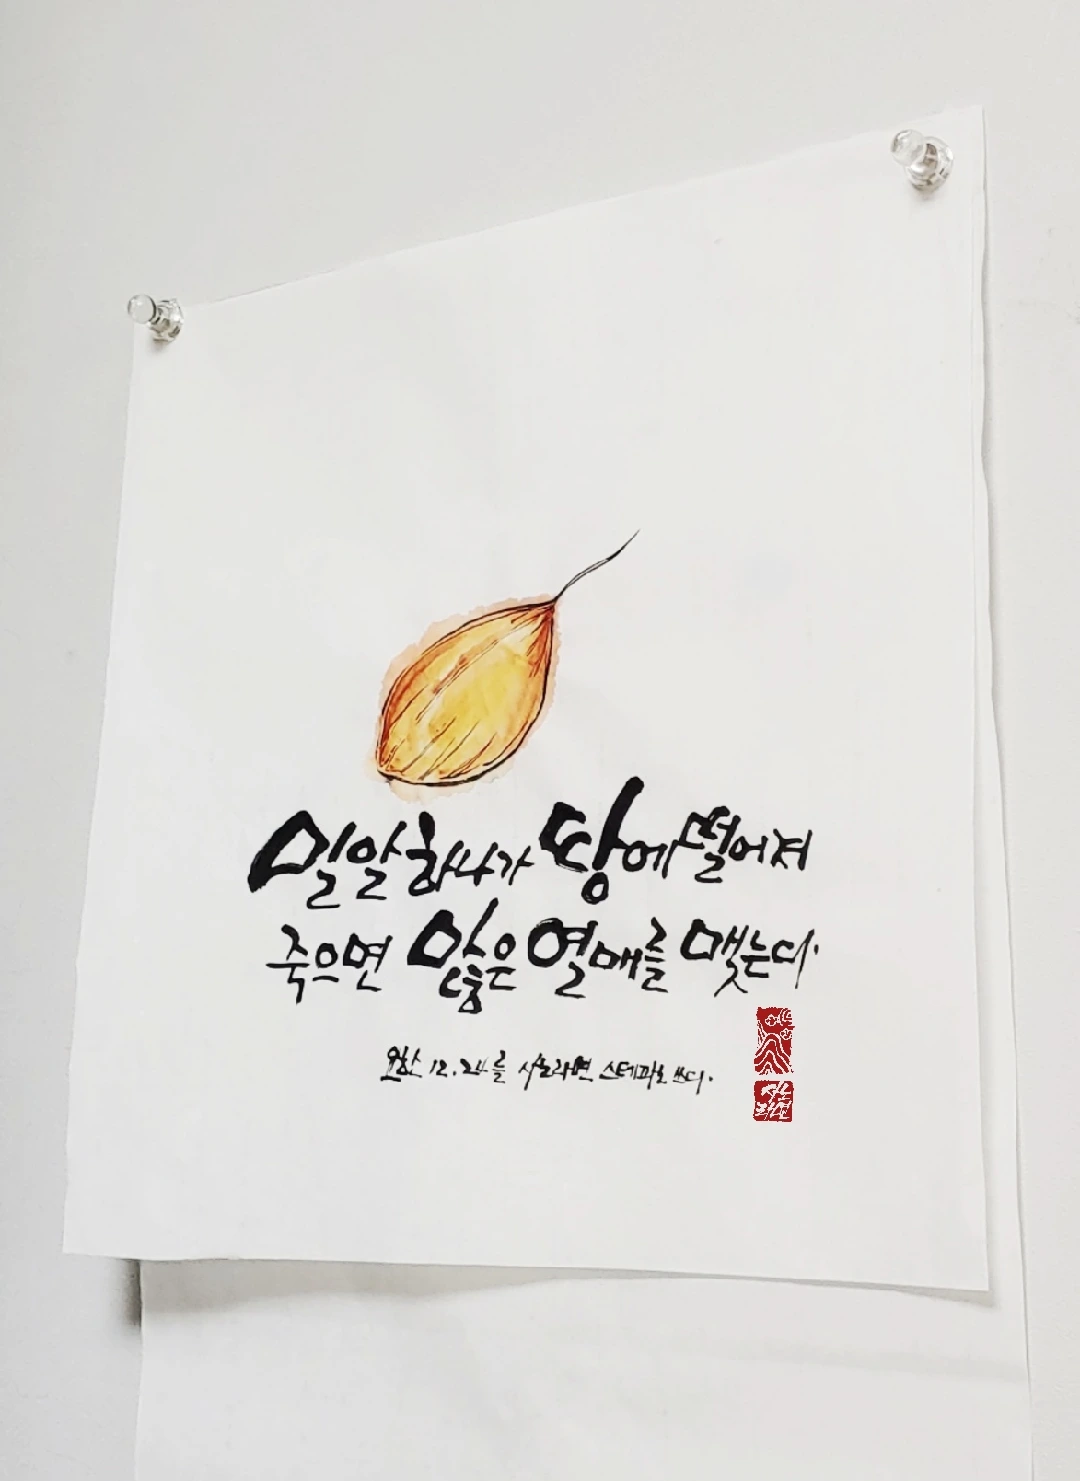 밀알 하나가 땅에 떨어져
죽으면 많은 열매를 맺는다.
요한 12.24를 사노라면 스테파노 쓰다.
사노
라면